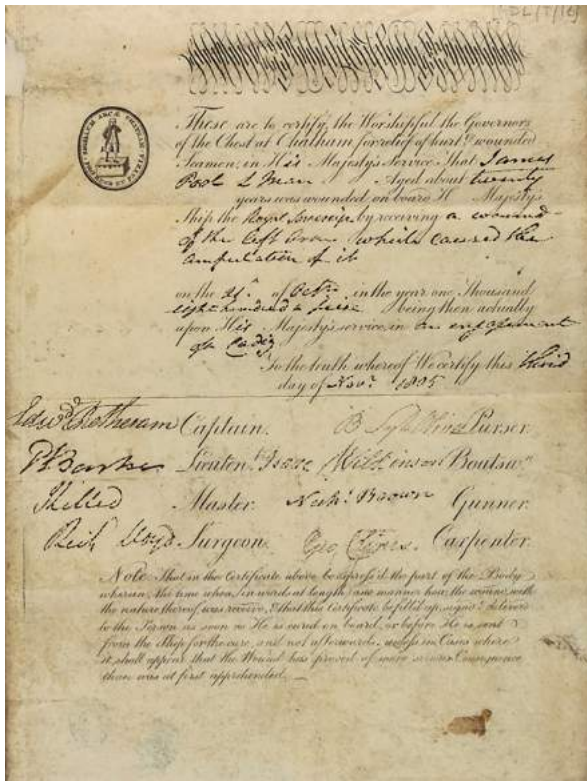 These are to certify, the Worshipful the Governors
of the Chest at Chatham for relief of hurt & wounded
Seamen, in His Majesty's Service, That James
Pool L Man Aged about twenty
years was wounded on board H Majesty's
Ship the Royal Sovereign by receiving a wound
of the left arm which caused the
amputation of it
on the 21st. of Octr. in the year one Thousand
eight hundred & five being then actually
upon His Majesty's service, in an engagement
off Cadiz
To the truth whereof We certify this third
day of Novr. 1805
Edwd. Rotheram Captain. Purser
Lieuten.t Isaac Wilkinson Boatsw.n
Killed Master. Nichs. Brown Gunner
Richd. Lloyd Surgeon. Geo. Clines. Carpenter
Note. That in the Certificate above be express'd the part of the Body
wherein, the time when, in words at length, and manner how the wound, with
the nature thereof, was receive, & that this Certificate be filled up, signd & deliverd
to the Person as soon as He is cured on board, or before He is sent
from the Ship for the cure, and not afterwards, unless in Cases where
it shall appear that the Wound has proved of more serious Consequence
than was at first apprehended.